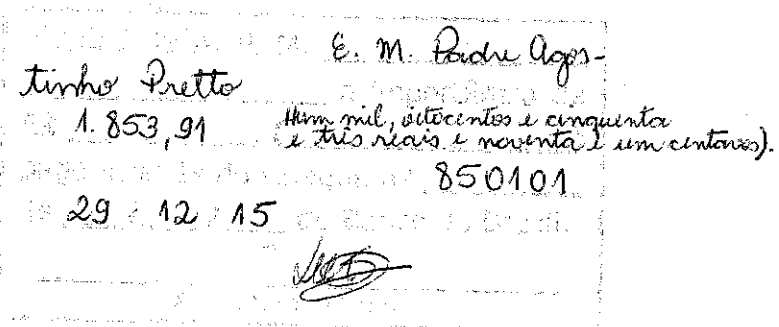 E. M. Padre Agos-
tinho Pretto
1.853,91 (Hum mil, oitocentos e cinquenta
e três reais e noventa e um centavos).
850101
29 12 15